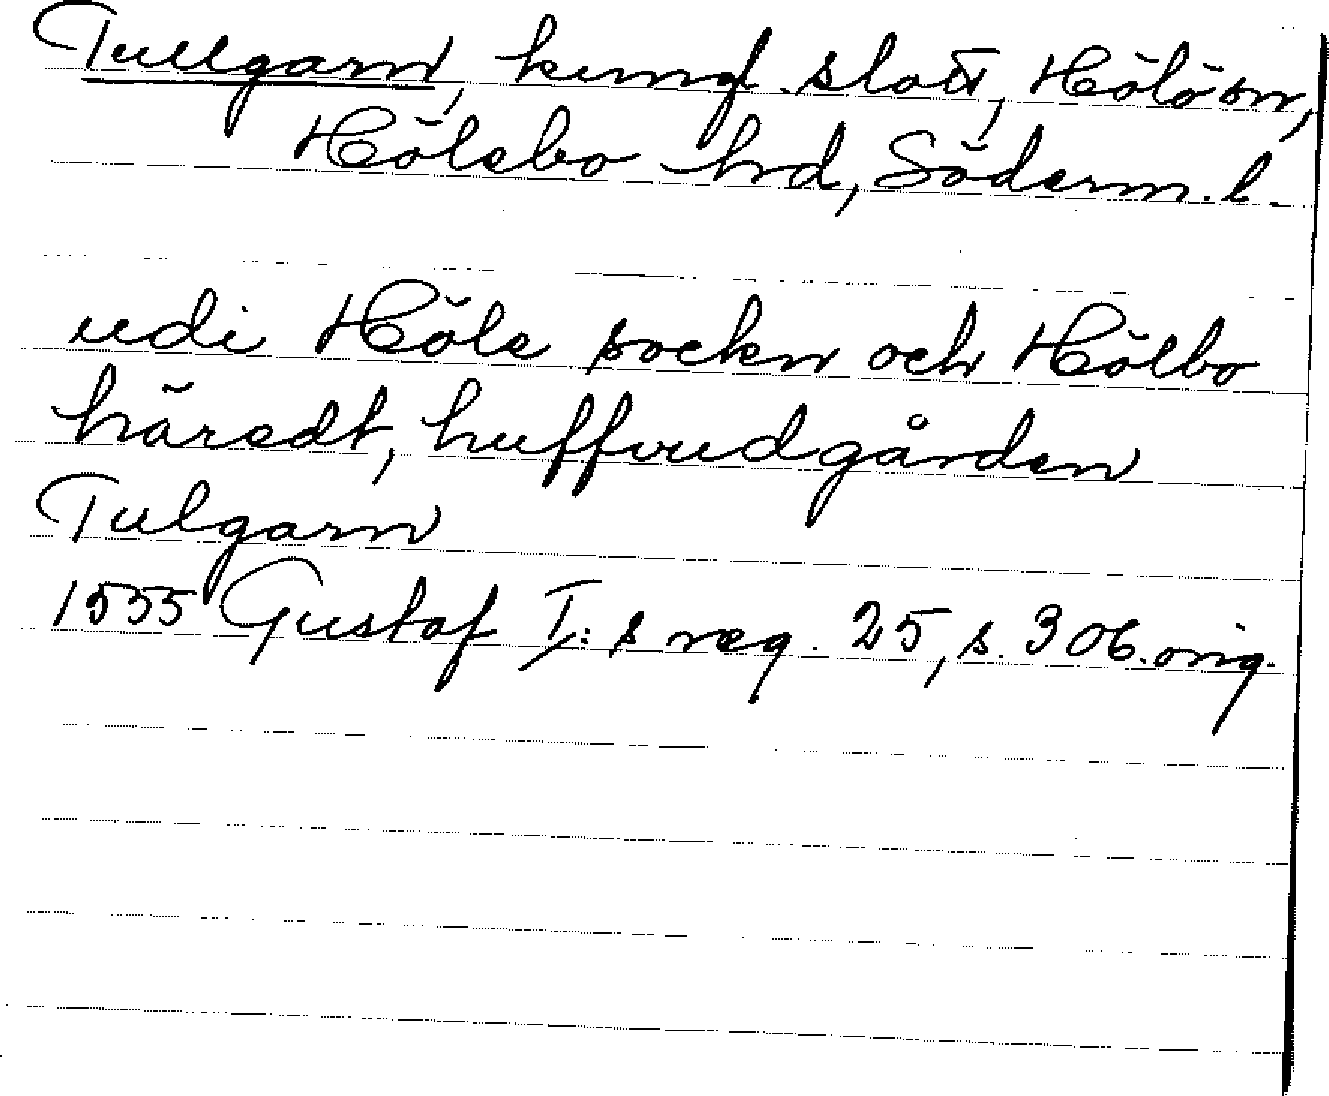 Tullgarn, kungl. slott, Hölö sn,
Hölebo hrd, Söderm. l.
udi Höle sockn och Hölbo
häredt, huffvudgården
Tulgarn
1555 Gustaf I:s reg. 25, s. 306. orig.